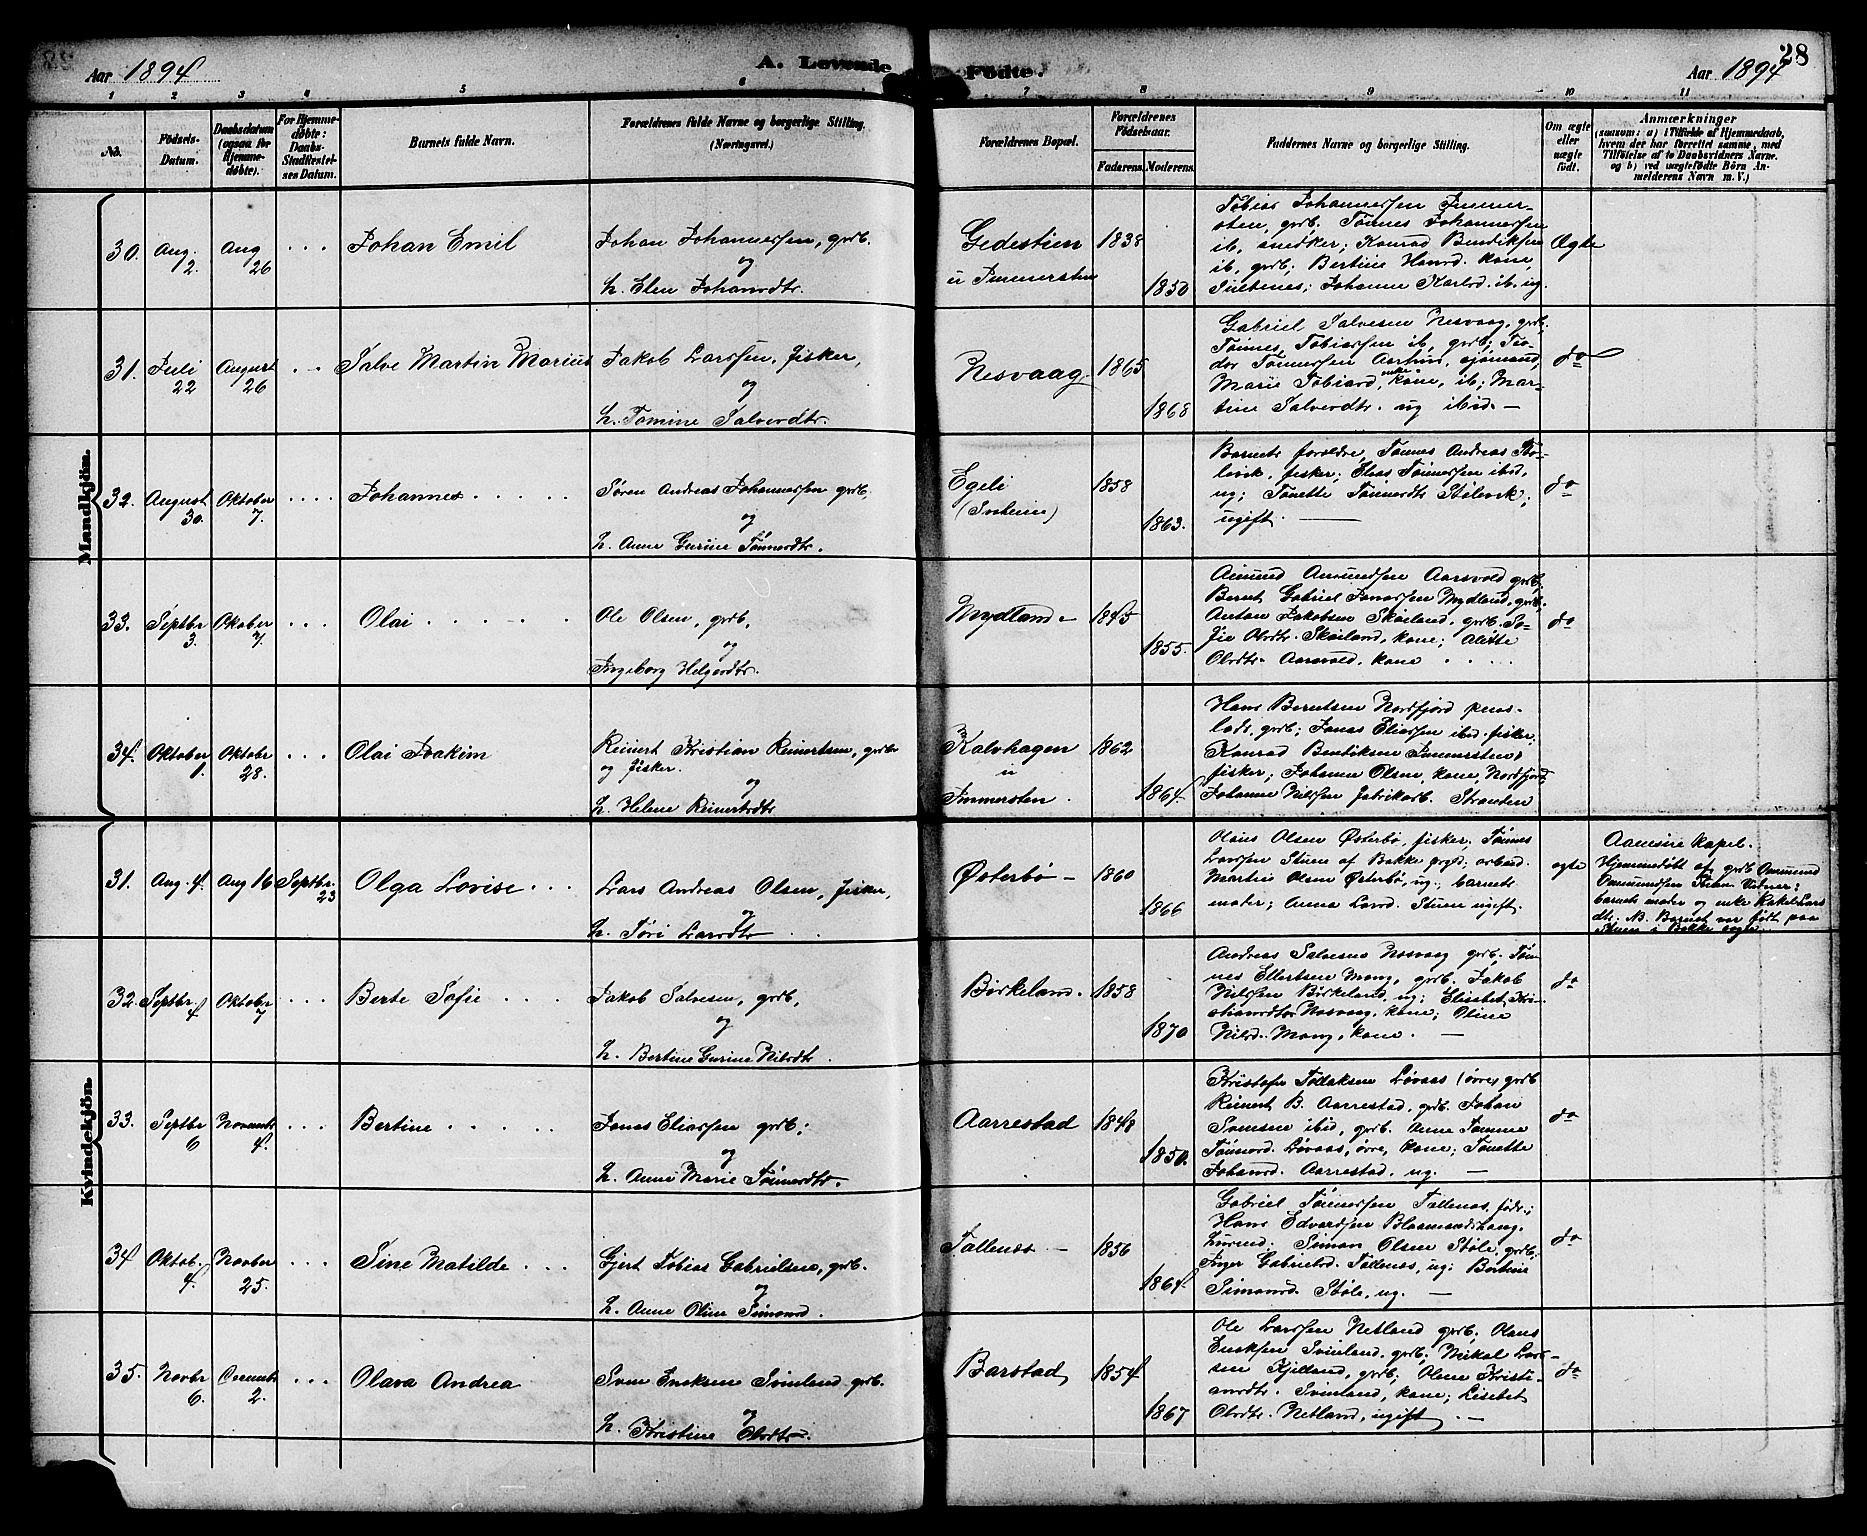 Aar 1894
A. Levende Födte.
28
Aar 1894
1 2 3 4 5 6 7 8 9 10 11
No.
Födsels-Datum.
Daabsdatum (ogsaa for Hjemmedøbte).
For Hjemmedøbte: Daabs-Stadfæstelses Datum.
Barnets fulde Navn.
Forældrenes fulde Navne og borgerlige Stilling. (Næringsvei.)
Forældrenes Bopæl.
Forældrenes Födselsaar.
Faderens. Moderens.
Faddernes Navne og borgerlige Stilling.
Om ægte eller uægte født.
Anmærkninger
(saasom: a) i Tilfælde af Hjemmedaab, hvem der har forrettet samme, med Tilføielse af to Daabsvidners Navne. og b) ved uægtefödte Börn Anmelderens Navn m. V.)
Mandkjön.
30. Aug. 2. Aug 26 . . . Johan Emil
Johan Johannessen, grdb.
og
h. Elen Johansdtr.
Gedestien u Immersten 1838 1850
Tobias Johannessen Immer-
sten, grdb. Tønnes Johannessen
ib, snedker; Konrad Bendiksen
ib, grdb; Bertine Hansd. kone,
Johanne Karlsd. ib. ug.
Ægte
31. Juli 22 August 26 . . Salve Martin Marius
Jakob Larssen, fisker,
og
h. Tomine Salvesdtr.
Nesvaag 1865 1868
Gabriel Salvesen Nesvaag, grdb.
Tønnes Tobiassen ib, grdb; Teo-
dor Tønnessen Aarhus, sjømand,
Marie Tobiasd, enke kone, ib; Mar-
tine Salvesdtr. ug ibid. —
do
32. August 30. Oktober 7. . . . . Johannes . . . . .
Søren Andreas Johannessen grdb.
og
h. Anne Gurine Tønnesdtr.
Egeli (Svoheim) 1858 1863.
Barnets forældre, Tønnes Andreas Stø-
levik, fisker; Elias Tønnessen ibid,
ug; Tonette Tønnesdtr Stølevik;
ugift. —
do
33. Septbr 3. Oktober 7. . . . Olai . . . . .
Ole Olsen, grdb,
og
Ingeborg Helgesdtr.
Mydland – 1845 1855.
Amund Amundsen Aarsvold grdb;
Bernt Gabriel Jonassen Mydland, grdb.
Anton Jakobsen Skailand, grdb. So-
fie Olsdtr. Skailand, kone; Alette
Olsdtr. Aarsvold, kone . . . .
do
34. Oktober 1. Oktobr 28. . . . Olai Joakim
Reinert Kristian Reinertsen, grdbr
og fisker.
og
h. Helene Reinertsdtr
Kalvhagen u Immersten. 1862 1864.
Hans Berntsen Nordfjord pens-
lods, grdb; Jonas Eliassen ibid. fisker;
Konrad Bendiksen Immersten,
fisker; Johanne Olsen, kone, Nordfjord
Johanne Nilssen fabrikarb. Stranden
Kvindekjön.
31. Aug. 4. Aug 16 Septbr. 23 Olga Lovise . . .
Lars Andreas Olsen, fisker,
og
h. Tøri Larsdtr . .
Østerbø – 1860 1866
Olaus Olsen Østerbø, fisker, Tønnes
Larssen Stuene af Bakke prgld; arbeid.
Martin Olsen Østerbø, ug; barnets
moder; Anna Larsd. Stuen ugift.
ægte
Aamsire Kapel.
Hjemmedøbt af grdb Ommund
Ommundsen Vidner:
barnets moder og enke Rakel Lars
dtr. NB. Barnet var født paa
Stuene i Bakke sogn.
32. Septbr. 4 Oktobr 7 . . . Berte Sofie . . . .
Jakob Salvesen, grdb,
og
h. Bertine Gurine Nilsdtr.
Birkeland. 1858 1870
Andreas Salvesen Nesvaag grdb. Tøn-
nes Ellertsen Mong, grdb. Jakob
Nilssen Birkeland, ug; Elisabet Kri-
stiansdtr Nesvaag, kone; Oline
Nilsd. Mong, kone. —
do
33. Septbr 6 Novembr 4. . . . Bertine . . . . .
Jonas Eliassen grdb;
og
h. Anne Marie Tønnesdtr.
Aarrestad 1848 1850.
Kristofer Tollaksen Løvaas (øvre) grdb
Reinert B. Aarrestad, grdb. Johan
Svensen ibid, grdb. Anne Tomine
Tønnesd. Løvaas, øvre, kone; Tonette
Johansd. Aarrestad, ug. —
do
34 Oktob. 4. Novber 25. . . . Sine Matilde . . .
Gjert Tobias Gabrielsen, grdb.
og
h. Anne Oline Simonsd.
Tallenæs. – 1856 1864
Gabriel Tønnessen Tallenæs, føder.;
Hans Edvardsen Blaamandshaug,
Simon Olsen Støle, grdb;
Inger Gabrielsd. Tallenæs, ug; Bertine
Simonsd. Støle, ug. —
do
35. Novbr 6. Decembr 2. . . . Olava Andrea
Sven Eriksen Svinland grdb.
og
h. Kristine Olsdtr.
Barstad 1854 1867
Ole Larssen Netland grdb. Olaus
Eriksen Svinland, grdb; Mikal Lars-
sen Kjelland, grdb; Oline Kristi-
ansdtr. Svinland, kone; Lisebet
Olsdtr. Netland, ugift. —
do